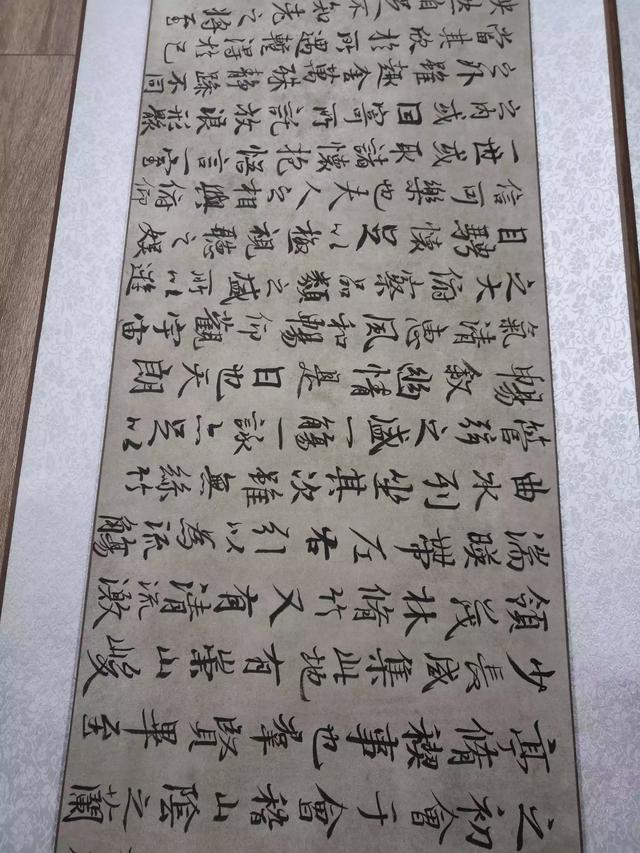 之初會于會稽山陰之蘭
亭脩禊事也羣賢畢至
少長咸集此地有崇山峻
領茂林脩竹又有清流激
湍暎帶左右引以為流觴
曲水列坐其次雖無絲竹
管弦之盛一觴一詠亦足以
暢敘幽情是日也天朗
氣清惠風和暢仰觀宇宙
之大俯察品類之盛所以遊
目騁懷足以極視聽之娛
信可樂也夫人之相與俯仰
一世或取諸懷抱悟言一室
之內或因寄所託放浪形骸
之外雖趣舍萬殊靜躁不同
當其欣於所遇暫得於己
怏然自足不知老之將至